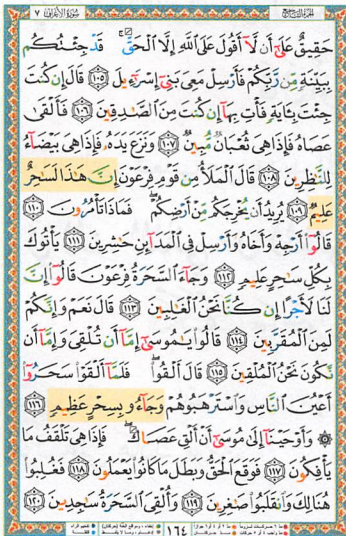 سورة الأعراف ٧
حَقِيقٌ عَلَىٰٓ أَن لَّآ أَقُولَ عَلَى ٱللَّهِ إِلَّا ٱلْحَقَّ ۚ قَدْ جِئْتُكُم
بِبَيِّنَةٍ مِّن رَّبِّكُمْ فَأَرْسِلْ مَعِىَ بَنِىٓ إِسْرَٰٓءِيلَ ١٠٥ قَالَ إِن كُنتَ
جِئْتَ بِـَٔايَةٍ فَأْتِ بِهَآ إِن كُنتَ مِنَ ٱلصَّـٰدِقِينَ ١٠٦ فَأَلْقَىٰ
عَصَاهُ فَإِذَا هِىَ ثُعْبَانٌ مُّبِينٌ ١٠٧ وَنَزَعَ يَدَهُۥ فَإِذَا هِىَ بَيْضَآءُ
لِلنَّـٰظِرِينَ ١٠٨ قَالَ ٱلْمَلَأُ مِن قَوْمِ فِرْعَوْنَ إِنَّ هَـٰذَا لَسَـٰحِرٌ
عَلِيمٌ ١٠٩ يُرِيدُ أَن يُخْرِجَكُم مِّنْ أَرْضِكُمْ ۖ فَمَاذَا تَأْمُرُونَ ١١٠
قَالُوٓا۟ أَرْجِهْ وَأَخَاهُ وَأَرْسِلْ فِى ٱلْمَدَآئِنِ حَـٰشِرِينَ ١١١ يَأْتُوكَ
بِكُلِّ سَـٰحِرٍ عَلِيمٍ ١١٢ وَجَآءَ ٱلسَّحَرَةُ فِرْعَوْنَ قَالُوٓا۟ إِنَّ
لَنَا لَأَجْرًا إِن كُنَّا نَحْنُ ٱلْغَـٰلِبِينَ ١١٣ قَالَ نَعَمْ وَإِنَّكُمْ
لَمِنَ ٱلْمُقَرَّبِينَ ١١٤ قَالُوا۟ يَـٰمُوسَىٰٓ إِمَّآ أَن تُلْقِىَ وَإِمَّآ أَن
نَّكُونَ نَحْنُ ٱلْمُلْقِينَ ١١٥ قَالَ أَلْقُوا۟ ۖ فَلَمَّآ أَلْقَوْا۟ سَحَرُوٓا۟
أَعْيُنَ ٱلنَّاسِ وَٱسْتَرْهَبُوهُمْ وَجَآءُو بِسِحْرٍ عَظِيمٍ ١١٦
۞ وَأَوْحَيْنَآ إِلَىٰ مُوسَىٰٓ أَنْ أَلْقِ عَصَاكَ ۖ فَإِذَا هِىَ تَلْقَفُ مَا
يَأْفِكُونَ ١١٧ فَوَقَعَ ٱلْحَقُّ وَبَطَلَ مَا كَانُوا۟ يَعْمَلُونَ ١١٨ فَغُلِبُوا۟
هُنَالِكَ وَٱنقَلَبُوا۟ صَـٰغِرِينَ ١١٩ وَأُلْقِىَ ٱلسَّحَرَةُ سَـٰجِدِينَ ١٢٠
١٦٤